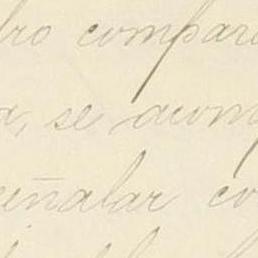 bro compar
a, se acom
señalar co